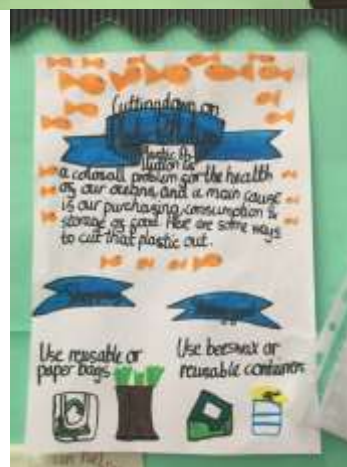 Cutting down on
Plastic Po
llution is
a colosall problem for the health
of our oceans, and a main cause
is our purchasing, consumption &
storage of food. Here are some ways
to cut that plastic out.
Use reusable or
paper bags
Use beeswax or
reusable containers